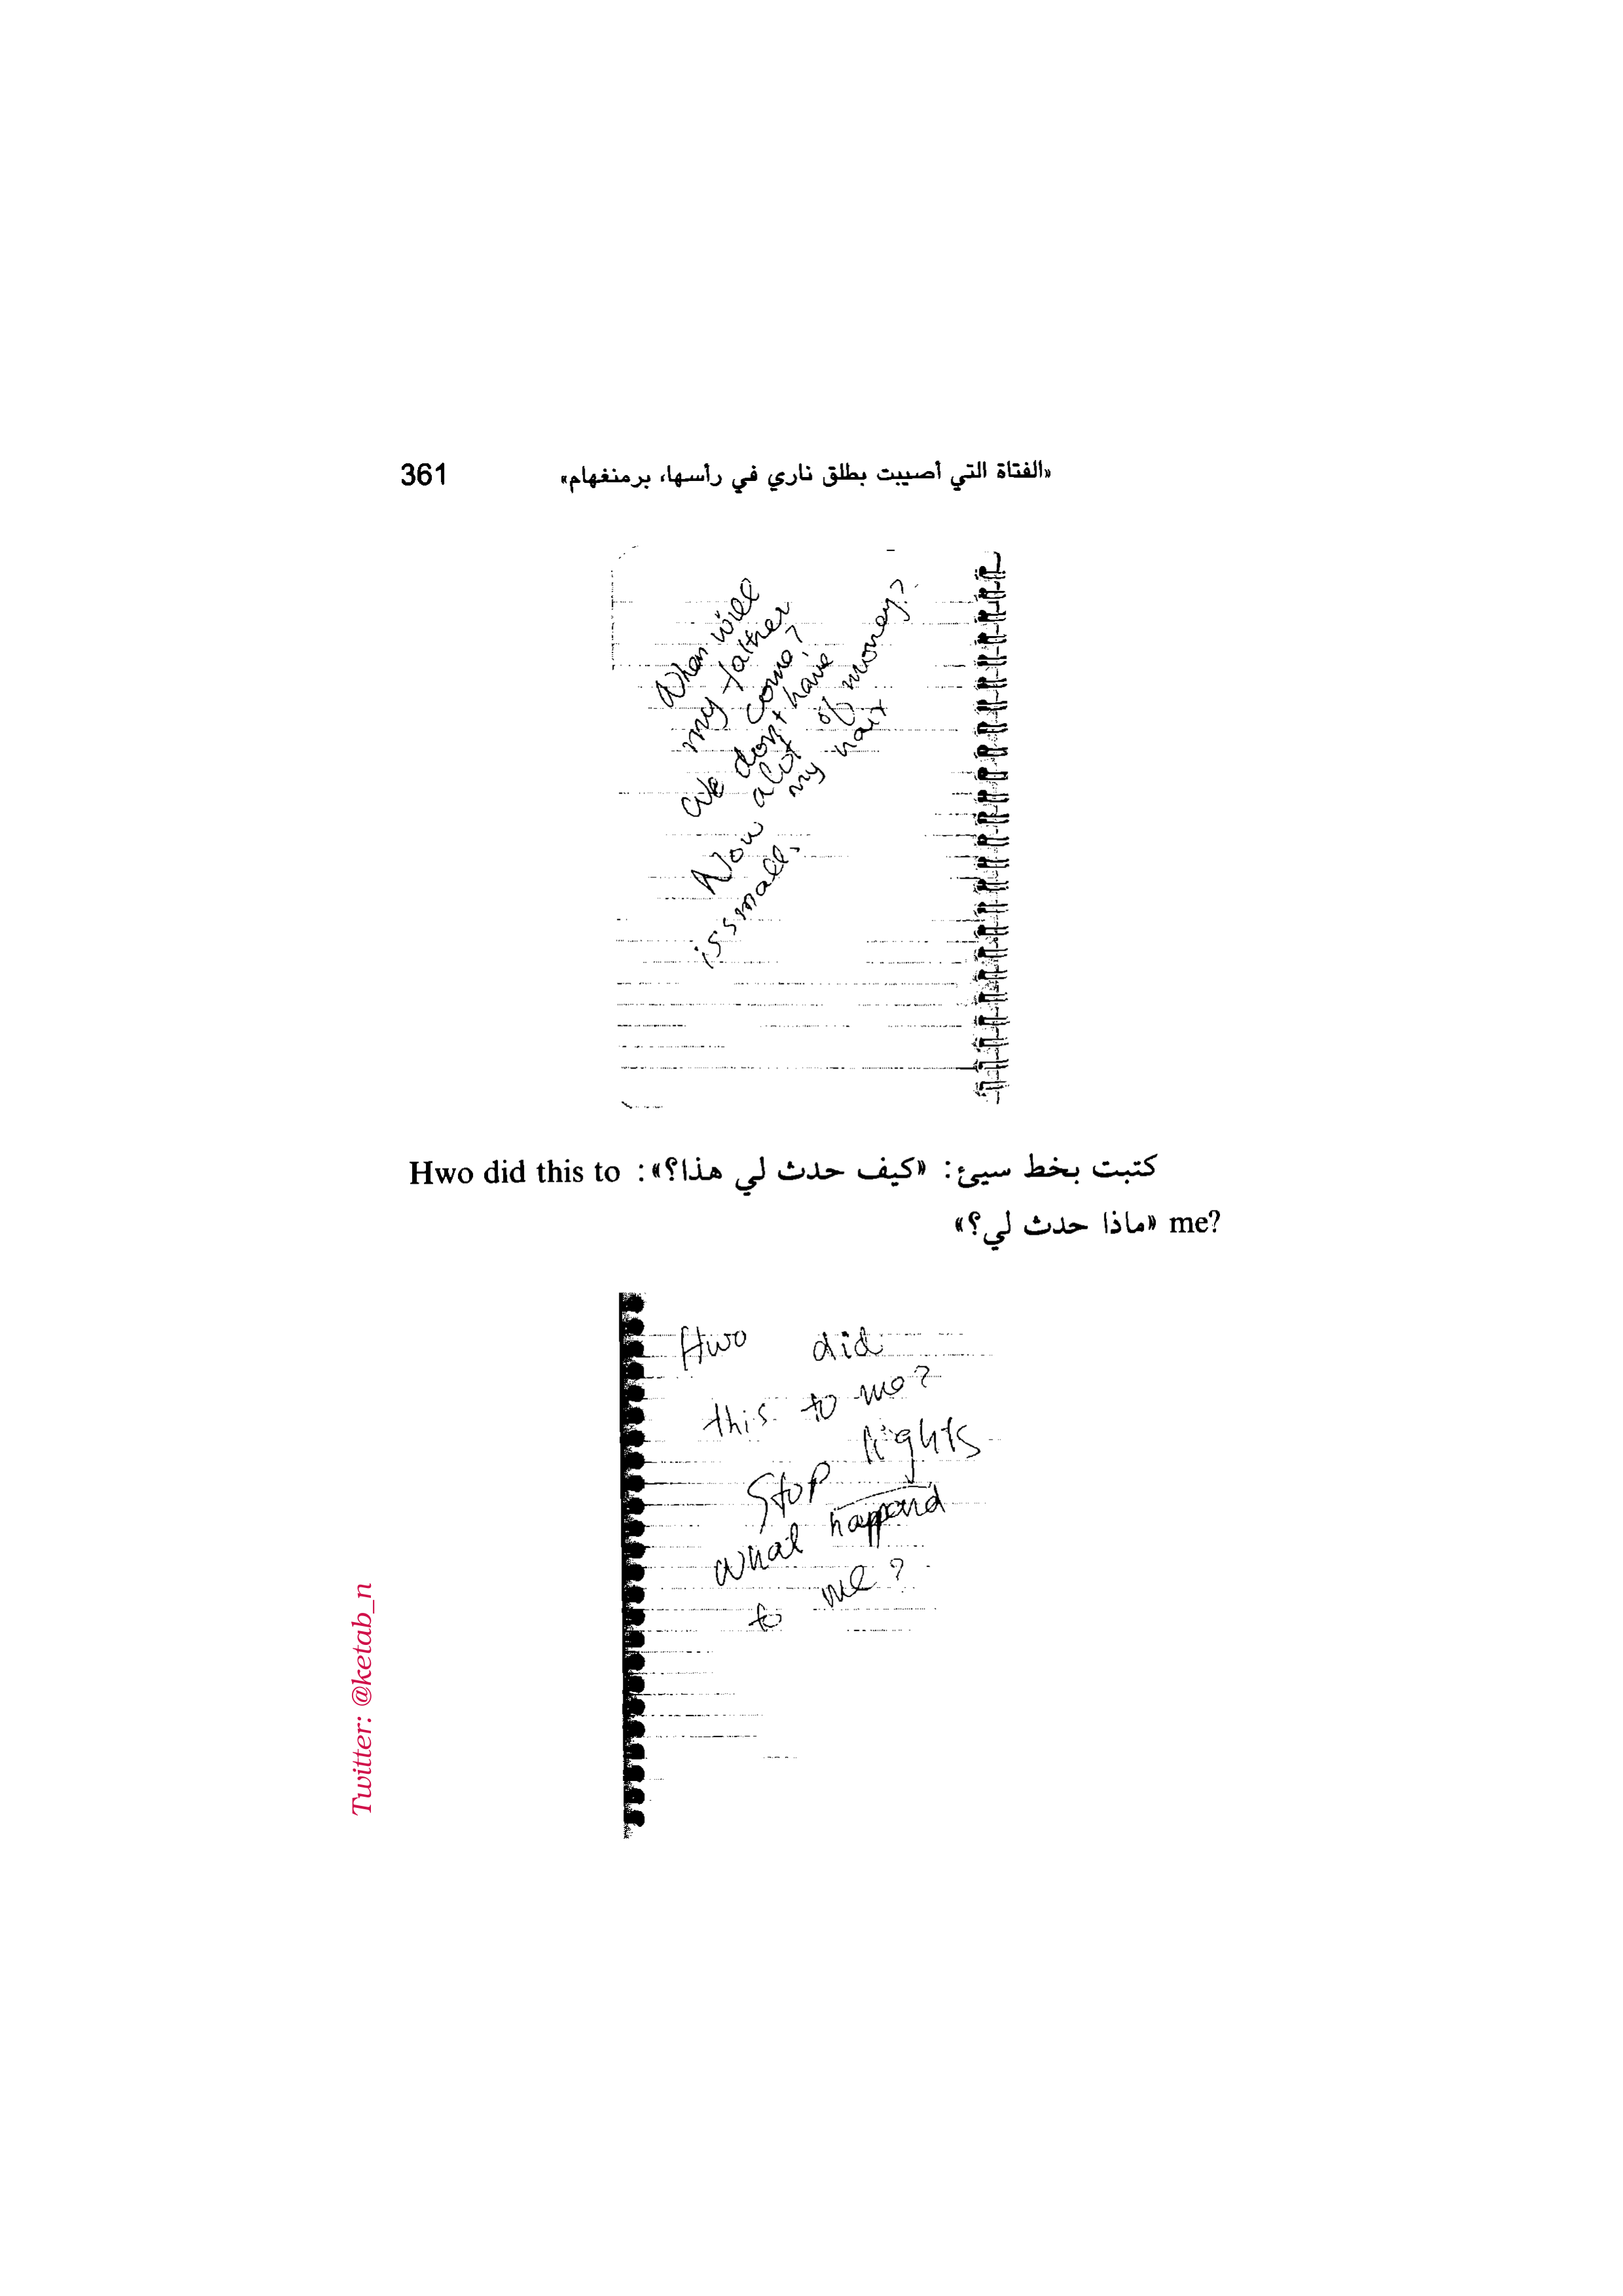 «الفتاة التي أصيبت بطلق ناري في رأسها، برمنغهام» 361
When will
my father
come?
We don't have
a lot of money?
Now my hair
is small.
كتبت بخط سيئ: «كيف حدث لي هذا؟»: Hwo did this to
me? «ماذا حدث لي؟»
Hwo did
this to me?
Stop lights
what happend
to me?
Twitter: @ketab_n